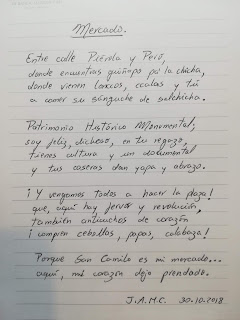 Mercado.
Entre calle Piérola y Perú,
donde encuentras guiñapo pa' la chicha,
donde vienen loncos, ccalas y tú
a comer su sánguche de salchicha.
Patrimonio Histórico Monumental,
soy feliz, dichoso, en tu regazo,
tienes cultura y un documental
y tus caseras dan yapa y abrazo.
¡Y vengamos todos a hacer la plaza!
que, aquí hay fervor y revolución,
también anticuchos de corazón
¡compren cebollas, papas, calabaza!
Porque San Camilo es mi mercado...
aquí, mi corazón dejo prendado.
J.A.M.C. 30.10.2018